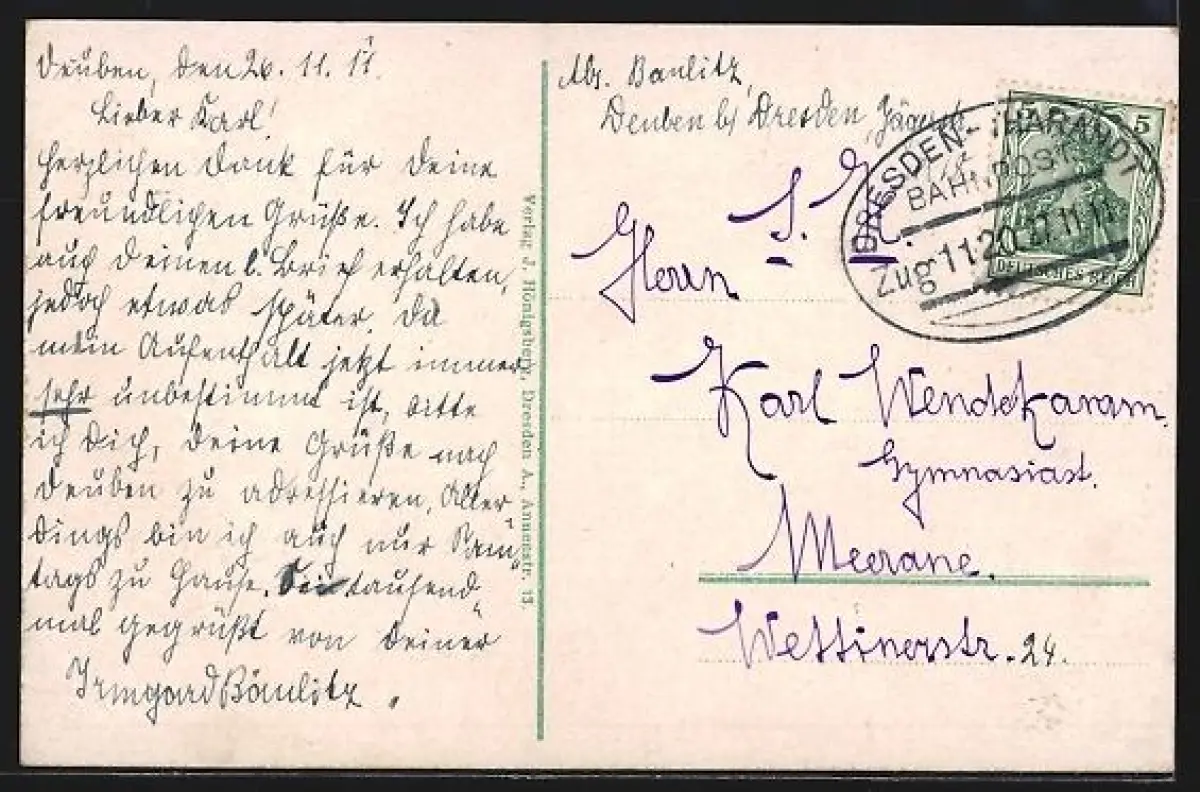 Deuben, den 26. 11. 11.
Lieber Karl!
Herzlichen Dank für Deine
freundlichen Grüße. Ich habe
auch Deinen l. Brief erhalten,
jedoch etwas später, da
mein Aufenthalt jetzt immer
sehr unbestimmt ist, bitte
ich Dich, Deine Grüße nach
Deuben zu adressieren. Aller-
dings bin ich auch nur Sams-
tags zu Hause. Sei tausend-
mal gegrüßt von Deiner
Irmgard Bänlitz.
Verlag J. Hönigsberg, Dresden A., Annenstr. 13.
Abs. Banlitz,
Deuben b/ Dresden,
DRESDEN-THARANDT
BAHNPOST
Zug 1120 27.11.11
5 5
DEUTSCHES REICH
S. H.
Herrn
Karl Wendekamm.
Gymnasiast.
Meerane.
Wettinerstr. 24.